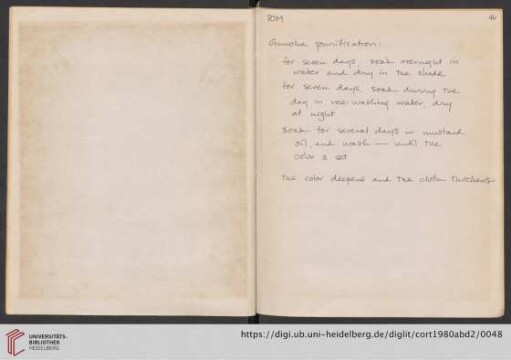 TOM
46
Gamcha purification:
for seven days, soak overnight in
water and dry in the shade
for seven days, soak during the
day in rice-washing water, dry
at night
soak for several days in mustard
oil, and wash — until the
color is set
the color deepens and the cloth thickens
UNIVERSITÄTS-
BIBLIOTHEK
HEIDELBERG
https://digi.ub.uni-heidelberg.de/diglit/cort1980abd2/0048